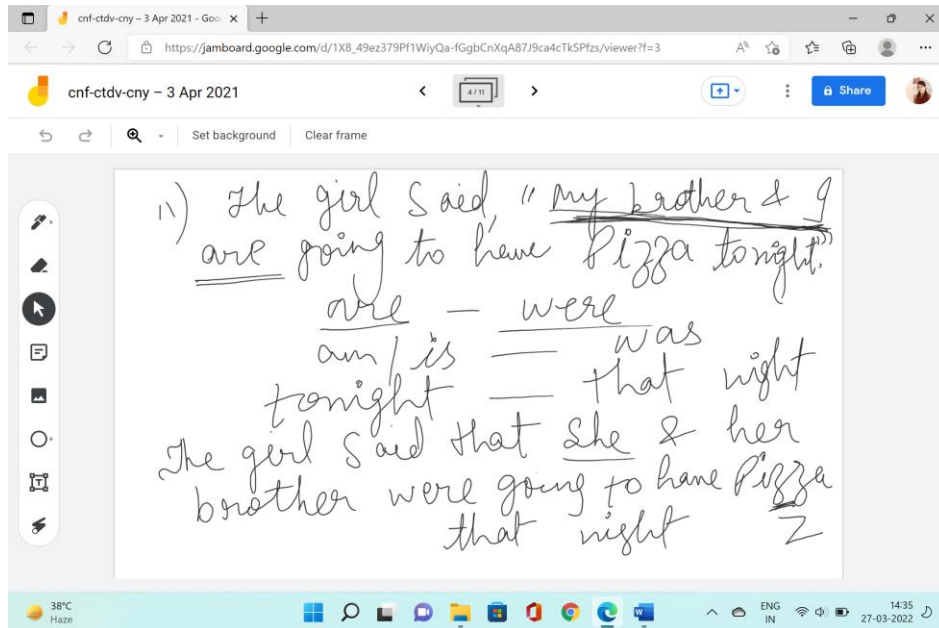 cnf-ctdv-cny – 3 Apr 2021 - Goo
https://jamboard.google.com/d/1X8_49ez379Pf1WiyQa-fGgbCnXqA87J9ca4cTkSPfzs/viewer?f=3
cnf-ctdv-cny – 3 Apr 2021
4 / 11
Share
Set background
Clear frame
11) The girl said, "my brother & I
are going to have Pizza tonight."
are – were
am / is = was
tonight = that night
The girl said that she & her
brother were going to have Pizza
that night Z
38°C
Haze
ENG
IN
14:35
27-03-2022